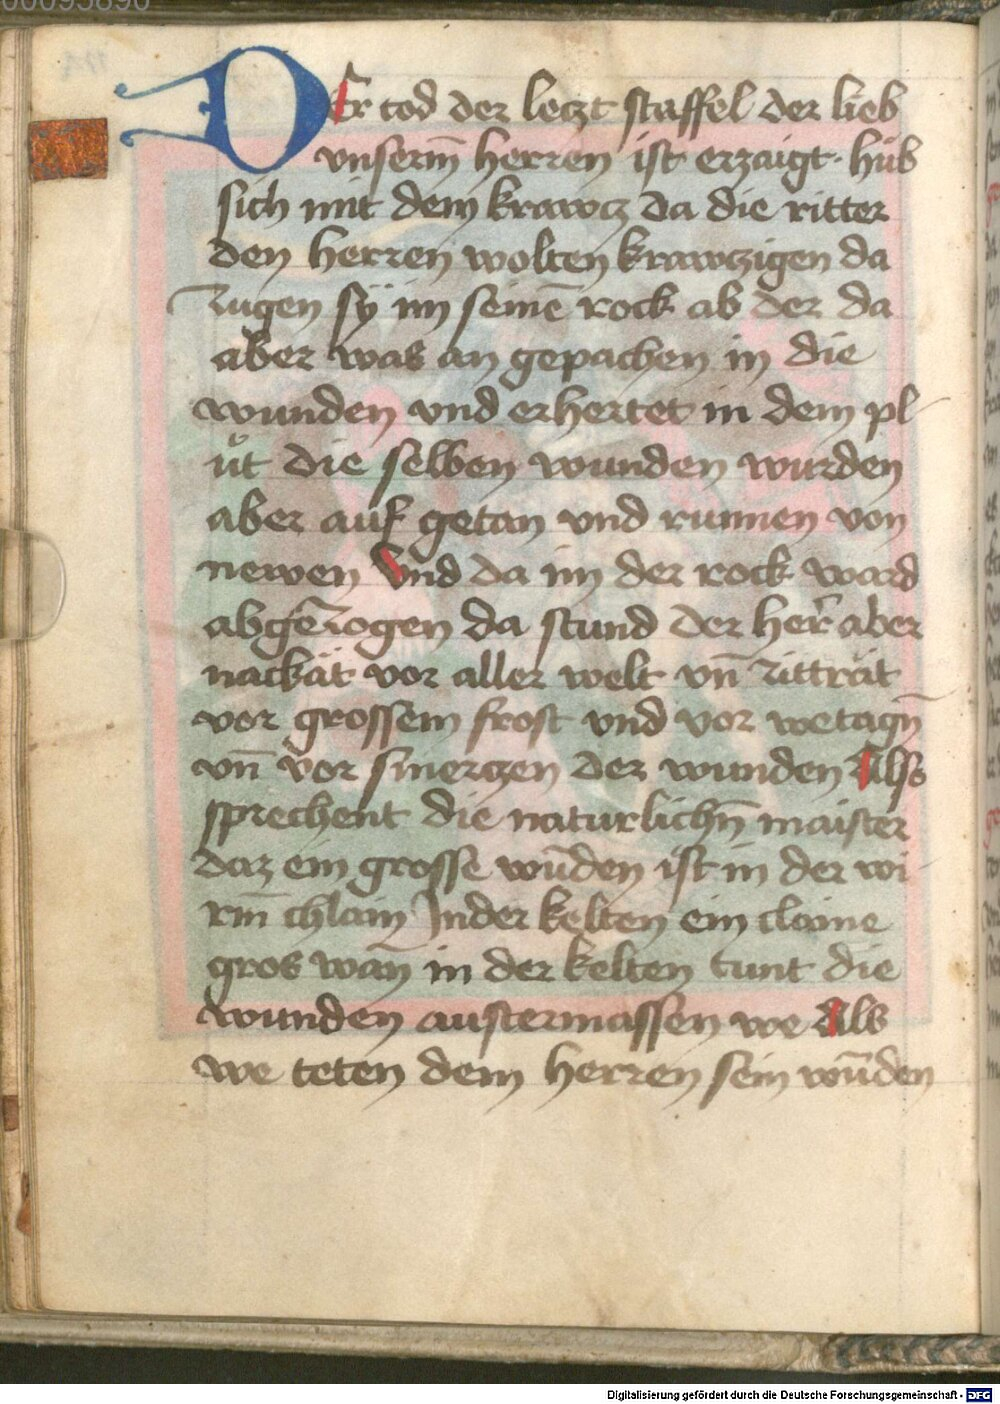 00095890
DEr tod der leczt staffel der lieb
vnserm̄ herren ist erzaigt · hůb
sich mit dem krawcz da die ritter
den herren wolten krawczigen da
zugen sÿ im seinē rock ab der da
aber was an gepachen in die
wunden vnd erhertet in dem pl
ůt die selben wunden wurden
aber auf getan vnd runnen von
newen Vnd da im der rock ward
abgezogen da stund der her̄ aber
nackät vor aller welt vn̄ zitträt
vor grossem frost vnd vor wetagn̄
vn̄ vor smerczen der wunden Als
sprechent die naturlichn̄ maister
daz ein grosse wūden ist in der wi
rm̄ chlain In der kelten ein claine
gros wan̄ in der kelten tunt die
wunden austermassen we Als
we teten dem herren sein wūden
Digitalisierung gefördert durch die Deutsche Forschungsgemeinschaft - DFG